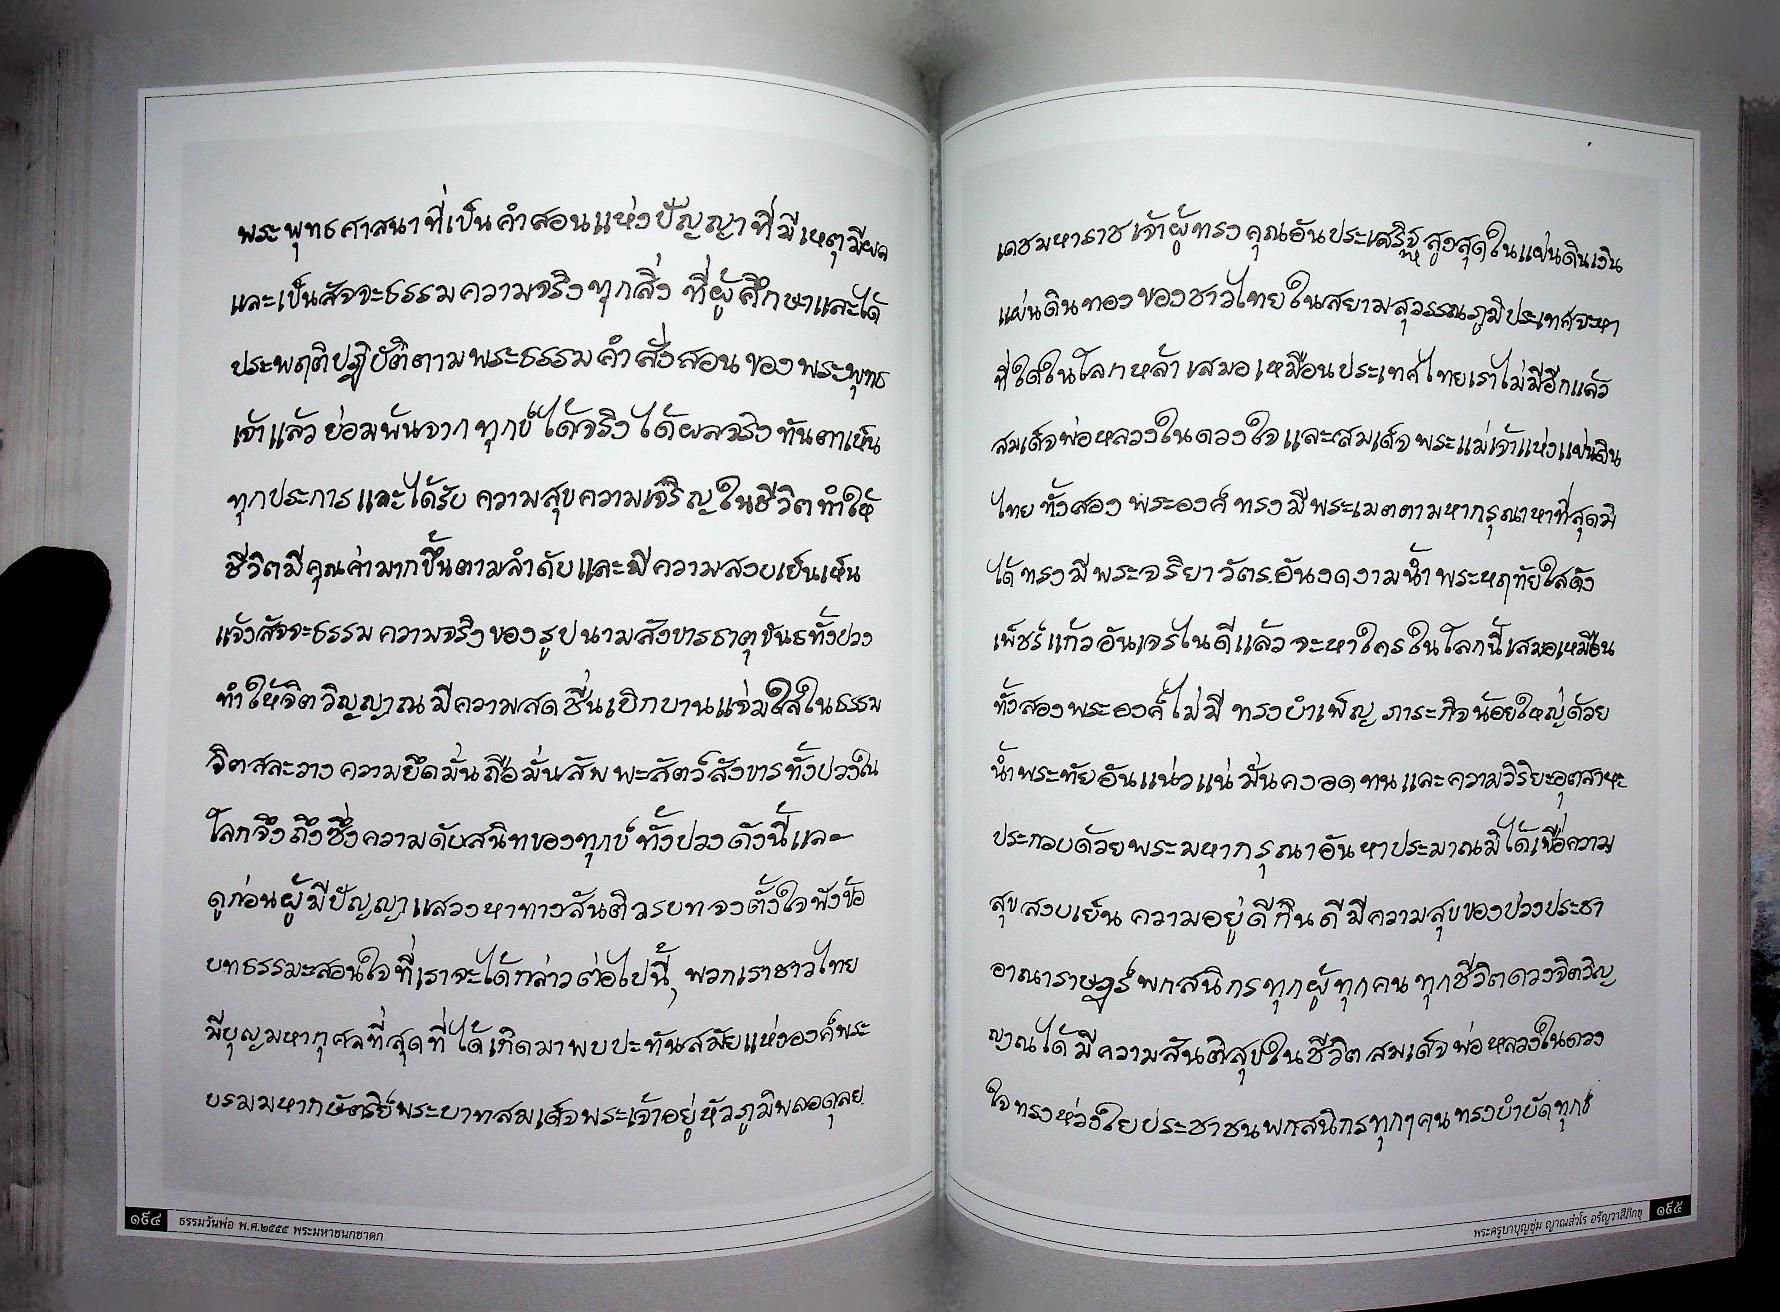 พระพุทธศาสนาที่เป็นคำสอนแห่งปัญญาที่มีเหตุมีผล
และเป็นสัจจะธรรมความจริงทุกสิ่ง ที่ผู้ศึกษาและได้
ประพฤติปฏิบัติตามพระธรรมคำสั่งสอนของพระพุทธ
เจ้าแล้วย่อมพ้นจากทุกข์ได้จริงได้ผลจริงทันตาเห็น
ทุกประการและได้รับ ความสุขความเจริญในชีวิตทำให้
ชีวิตมีคุณค่ามากขึ้นตามลำดับและมีความสงบเย็นเห็น
แจ้งสัจจะธรรมความจริงของรูปนามสังขารธาตุขันธทั้งปวง
ทำให้จิตวิญญาณมีความสดชื่นเบิกบานแจ่มใสในธรรม
จิตสละวางความยึดมั่นถือมั่นสัพพะสัตว์สังขารทั้งปวงใน
โลกจึงถึงซึ่งความดับสนิทของทุกข์ทั้งปวงดังนี้แล
ดูก่อนผู้มีปัญญาแสวงหาทางสันติวรบทจงตั้งใจฟังข้อ
บทธรรมะสอนใจที่เราจะได้กล่าวต่อไปนี้, พวกเราชาวไทย
มีบุญมหากุศลที่สุดที่ได้เกิดมาพบปะทันสมัยแห่งองค์พระ
บรมมหากษัตริย์พระบาทสมเด็จพระเจ้าอยู่หัวภูมิพลอดุลย
๑๙๔ ธรรมวันพ่อ พ.ศ.๒๕๕๕ พระมหาชนกชาดก
เดชมหาราชเจ้าผู้ทรงคุณอันประเสริฐสูงสุดในแผ่นดินเงิน
แผ่นดินทองของชาวไทยในสยามสุวรรณภูมิประเทศจะหา
ที่ใดในโลกหล้าเสมอเหมือนประเทศไทยเราไม่มีอีกแล้ว
สมเด็จพ่อหลวงในดวงใจและสมเด็จพระแม่เจ้าแห่งแผ่นดิน
ไทยทั้งสองพระองค์ทรงมีพระเมตตามหากรุณาหาที่สุดมิ
ได้ทรงมีพระจริยาวัตรอันงดงามน้ำพระหฤทัยใสดัง
เพ็ชร์แก้วอันเจรไนดีแล้วจะหาใครในโลกนี้เสมอเหมือน
ทั้งสองพระองค์ไม่มี ทรงบำเพ็ญภาระกิจน้อยใหญ่ด้วย
น้ำพระทัยอันแน่วแน่มั่นคงอดทนและความวิริยะอุตสาหะ
ประกอบด้วยพระมหากรุณาอันหาประมาณมิได้เพื่อความ
สุขสงบเย็นความอยู่ดีกินดีมีความสุขของปวงประชา
อาณาราษฎร์พกสนิกรทุกผู้ทุกคนทุกชีวิตดวงจิตวิญ
ญาณได้มีความสันติสุขในชีวิตสมเด็จพ่อหลวงในดวง
ใจทรงห่วงใยประชาชนพกสนิกรทุกๆคนทรงบำบัดทุกข์
พระครูบาบุญชุ่ม ญาณสํวโร อรัญวาสีภิกขุ ๑๙๕